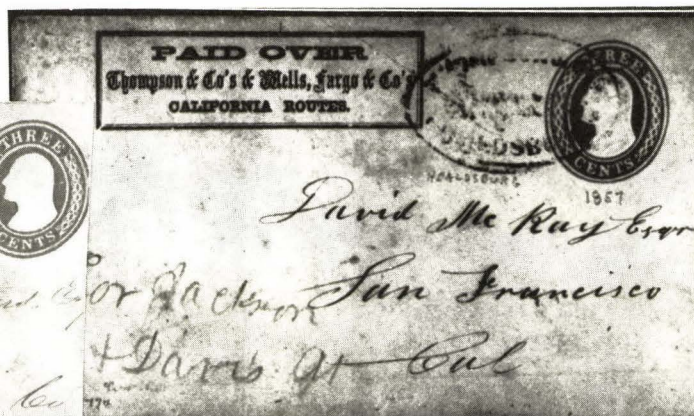 PAID OVER
Thompson & Co's & Wells, Fargo & Co's
CALIFORNIA ROUTES.
THREE
CENTS
HEALDSBURG
1857
David McKay Esqr
San Francisco
Cal
Cor Jackson
+ Davis St
THREE
CENTS
Co